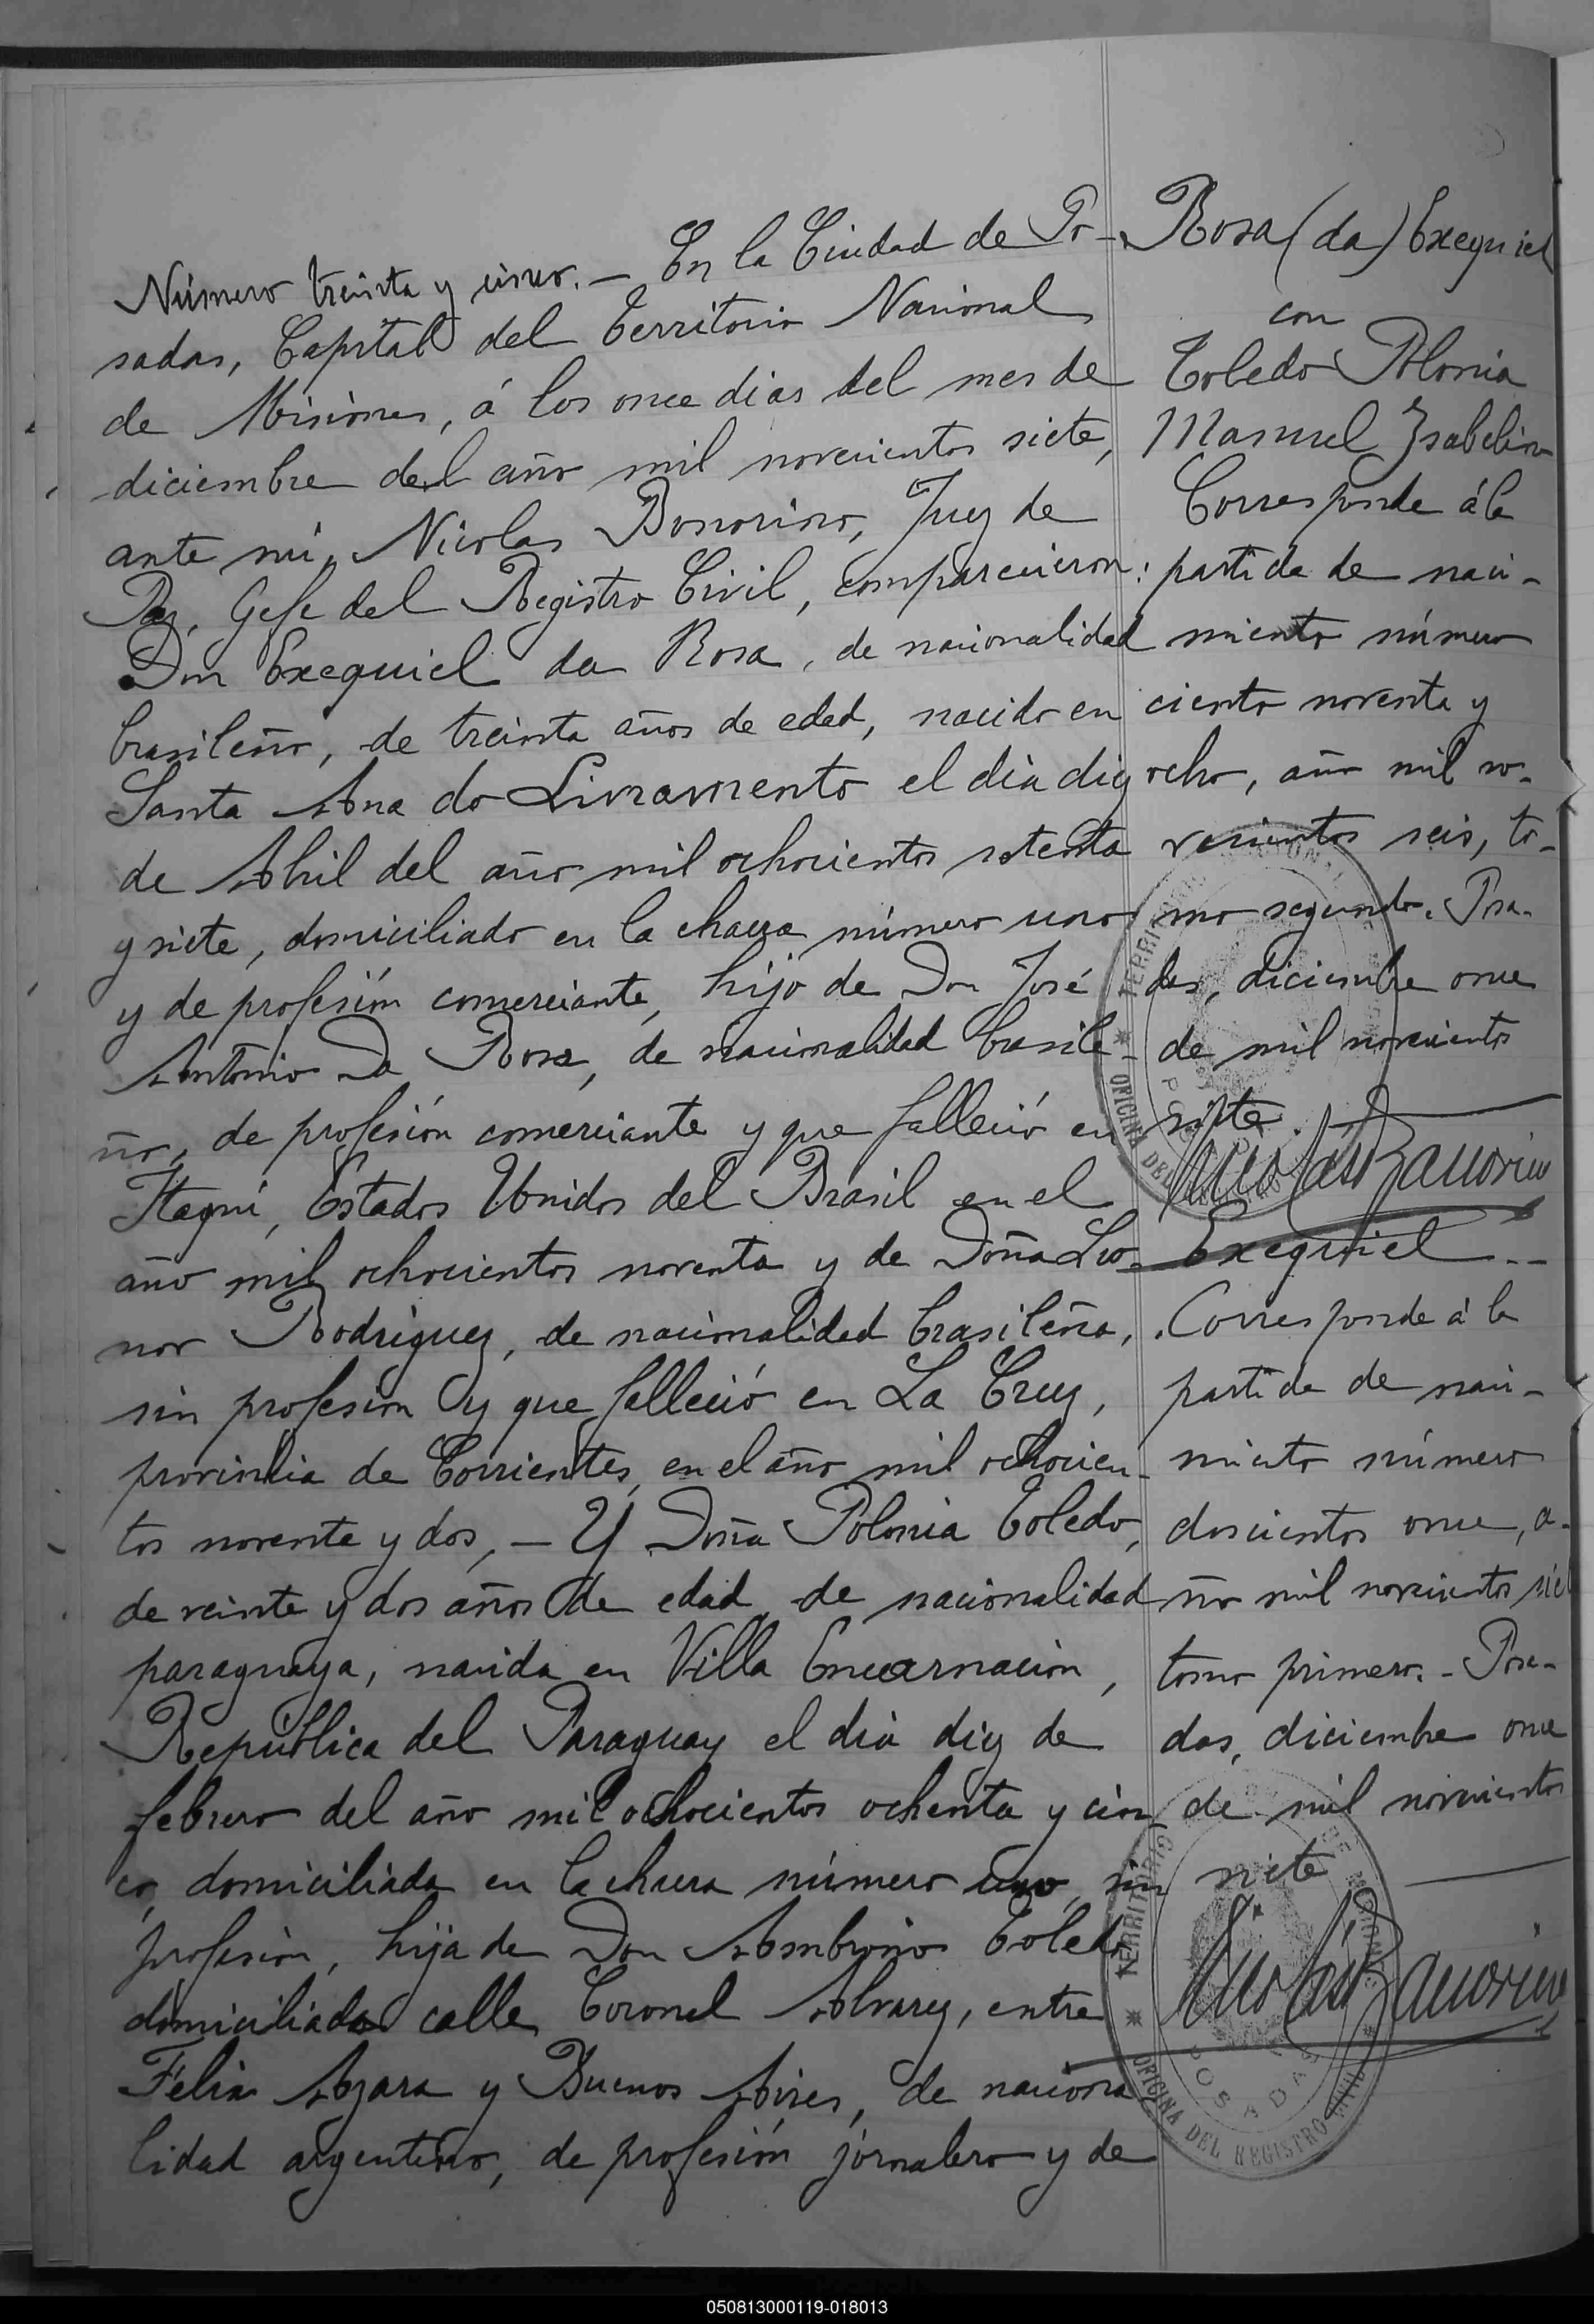 Número treinta y cinco. — En la Ciudad de Po-
sadas, Capital del Territorio Nacional
de Misiones, á los once dias del mes de
diciembre del año mil novecientos siete,
ante mi, Nicolas Bonorino, Juez de
Paz, Gefe del Registro Civil, comparecieron:
Don Exequiel da Rosa, de nacionalidad
brasileño, de treinta años de edad, nacido en
Santa Ana do Livramento el dia diez
de Abril del año mil ochocientos setenta
y siete, domiciliado en la chacra número uno
y de profesión comerciante, hijo de Don José
Antonio Da Rosa, de nacionalidad brasile-
ño, de profesión comerciante y que falleció en
Itaqui, Estados Unidos del Brasil en el
año mil ochocientos noventa y de Doña Leo-
nor Rodriguez, de nacionalidad brasileña,
sin profesion y que falleció en La Cruz,
provincia de Corrientes, en el año mil ochocien-
tos noventa y dos, — Y Doña Polonia Toledo,
de veinte y dos años de edad, de nacionalidad
paraguaya, nacida en Villa Encarnacion,
República del Paraguay el dia diez de
febrero del año mil ochocientos ochenta y cin
co, domiciliada en la chacra número uno, sin
profesion, hija de Don Ambrosio Toledo
domiciliado calle Coronel Alvarez, entre
Felix Azara y Buenos Aires, de naciona
lidad argentino, de profesión jornalero y de
Rosa (da) Exequiel
con
Toledo Polonia
Manuel Isabelino
Corresponde á la
partida de naci-
miento número
ciento noventa y
ocho, año mil no-
vecientos seis, to-
mo segundo. Posa-
das, diciembre once
de mil novecientos
siete.
Nicolás Bonorino
Exequiel --
Corresponde á la
partida de naci-
miento número
doscientos once, a-
ño mil novecientos siete
tomo primero. - Posa-
das, diciembre once
de mil novecientos
siete
Nicolás Bonorino
TERRITORIO DE MISIONES
OFICINA DEL REGISTRO CIVIL
POSADAS
050813000119-018013